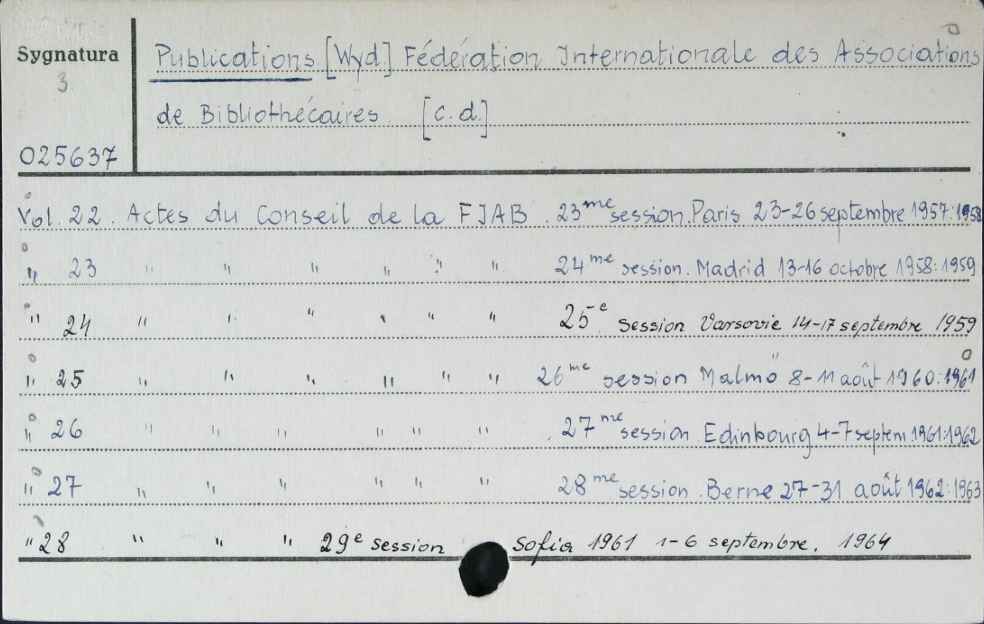 Sygnatura
3
025637
Publications [Wyd] Fédération Internationale des Associations
de Bibliothécaires [c.d.]
Vol. 22. Actes du Conseil de la FIAB. 23me session. Paris 23-26 septembre 1957:1958
" 23 " " " " " " 24me session. Madrid 13-16 octobre 1958:1959
" 24 " " " " " " 25e session Varsovie 14-17 septembre 1959
" 25 " " " " " " 26me session Malmö 8-11 août 1960:1961
" 26 " " " " " " 27me session Edinbourg 4-7 septem 1961:1962
" 27 " " " " " " 28me session. Berne 27-31 août 1962:1963
" 28 " " " 29e session Sofia 1961 1-6 septembre, 1964